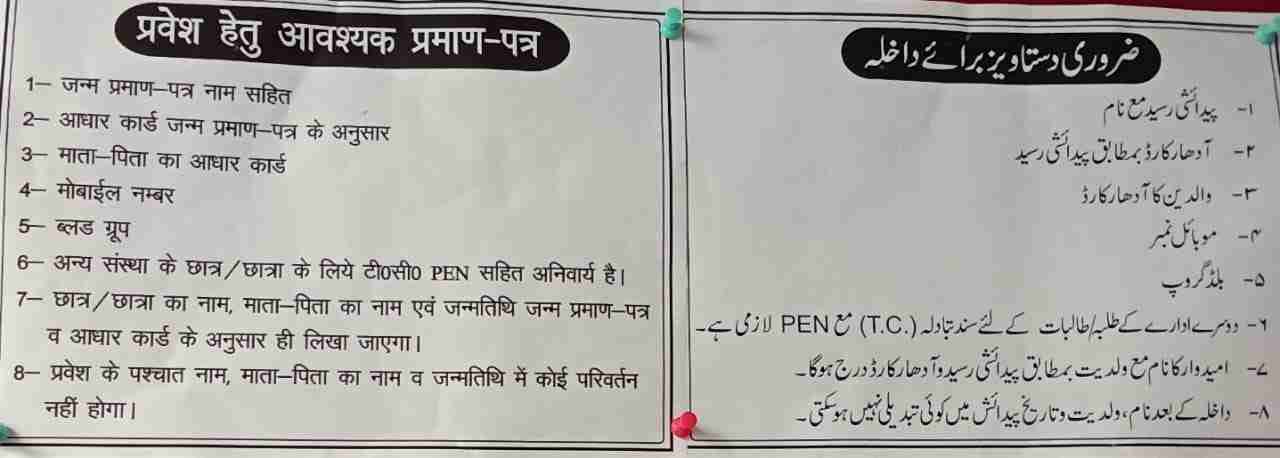 प्रवेश हेतु आवश्यक प्रमाण-पत्र
1– जन्म प्रमाण–पत्र नाम सहित
2– आधार कार्ड जन्म प्रमाण–पत्र के अनुसार
3– माता–पिता का आधार कार्ड
4– मोबाईल नम्बर
5– ब्लड ग्रूप
6– अन्य संस्था के छात्र/छात्रा के लिये टी0सी0 PEN सहित अनिवार्य है।
7– छात्र/छात्रा का नाम, माता–पिता का नाम एवं जन्मतिथि जन्म प्रमाण–पत्र
व आधार कार्ड के अनुसार ही लिखा जाएगा।
8– प्रवेश के पश्चात नाम, माता–पिता का नाम व जन्मतिथि में कोई परिवर्तन
नहीं होगा।
ضروری دستاویز برائے داخلہ
۱- پیدائشی رسید مع نام
۲- آدھار کارڈ بمطابق پیدائشی رسید
۳- والدین کا آدھار کارڈ
۴- موبائل نمبر
۵- بلڈ گروپ
۶- دوسرے ادارے کے طلبہ/طالبات کے لئے سند تبادلہ (T.C.) مع PEN لازمی ہے۔
۷- امیدوار کا نام مع ولدیت بمطابق پیدائشی رسید و آدھار کارڈ درج ہوگا۔
۸- داخلہ کے بعد نام، ولدیت و تاریخ پیدائش میں کوئی تبدیلی نہیں ہوسکتی۔